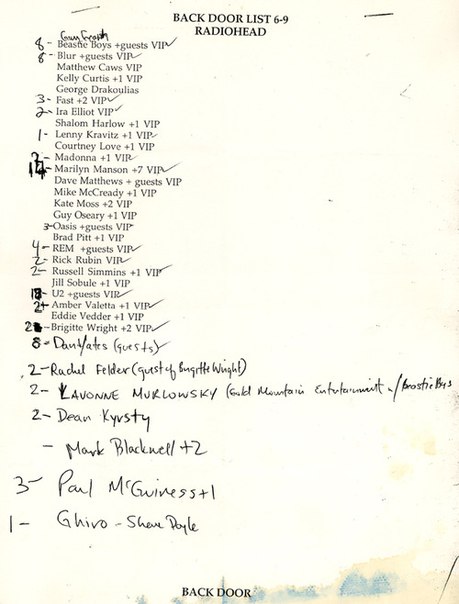 BACK DOOR LIST 6-9
RADIOHEAD
8- Beastie Boys +guests VIP ✓
8- Blur +guests VIP ✓
Matthew Caws VIP
Kelly Curtis +1 VIP
George Drakoulias
3- Fast +2 VIP ✓
2- Ira Elliot VIP ✓
Shalom Harlow +1 VIP
1- Lenny Kravitz +1 VIP ✓
Courtney Love +1 VIP
Madonna +1 VIP ✓
Marilyn Manson +7 VIP ✓
Dave Matthews + guests VIP
Mike McCready +1 VIP
Kate Moss +2 VIP
Guy Oseary +1 VIP
3- Oasis +guests VIP ✓
Brad Pitt +1 VIP
4- REM +guests VIP ✓
2- Rick Rubin VIP ✓
2- Russell Simmins +1 VIP ✓
Jill Sobule +1 VIP
U2 +guests VIP ✓
2- Amber Valetta +1 VIP ✓
Eddie Vedder +1 VIP
Brigitte Wright +2 VIP ✓
8- (guests)
2- Rachel Felder (guest of Brigitte Wright)
2- LAVONNE MURLOWSKY (Gold Mountain Entertainment w/ Beastie Boys
2- Dean Kyrsty
- Mark Blackwell +2
3- Paul McGuiness +1
1- Ghiro - Shane Doyle
BACK DOOR